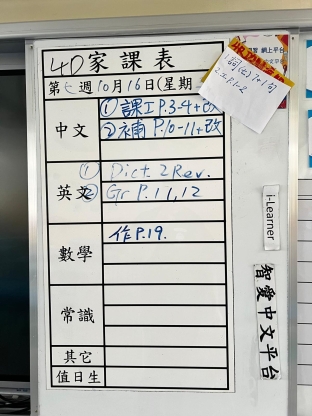 4D 家課表
第七週 10月16日(星期
中文
① 課工 P.3-4+改
② 補 P.10-11+改
英文
① Dict. 2 Rev.
② Gr P.11,12
數學
作 P.19.
常識
其它
值日生
網上平台
i-Learner
智愛中文平台